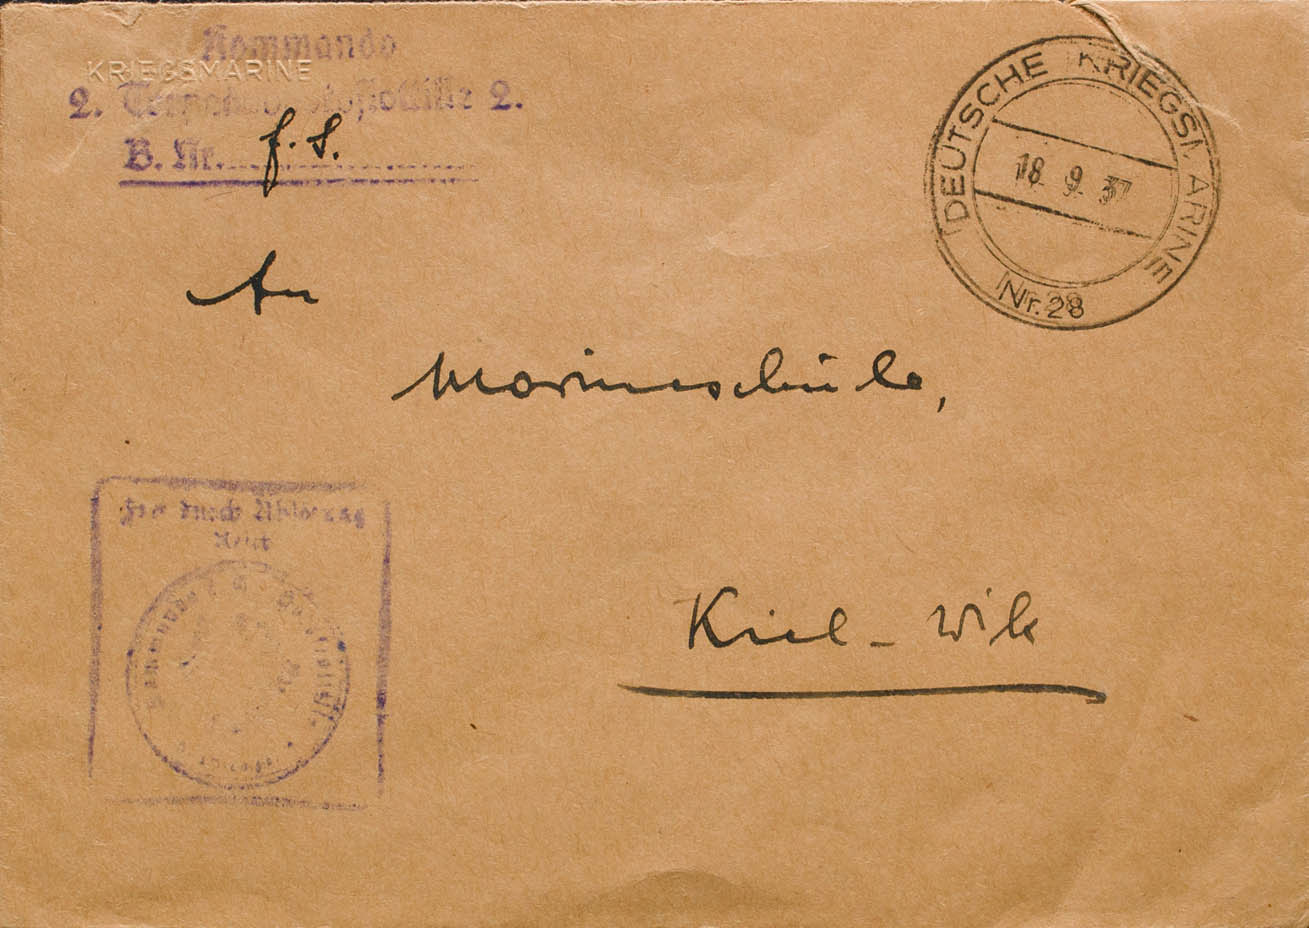 Kommando
KRIEGSMARINE
2. Torpedobootsflottille 2.
B. Nr. f. S.
DEUTSCHE KRIEGSMARINE
18 9. 37
Nr. 28
An
Marineschule,
Frei durch Ablösung
Reich
Kiel - Wik